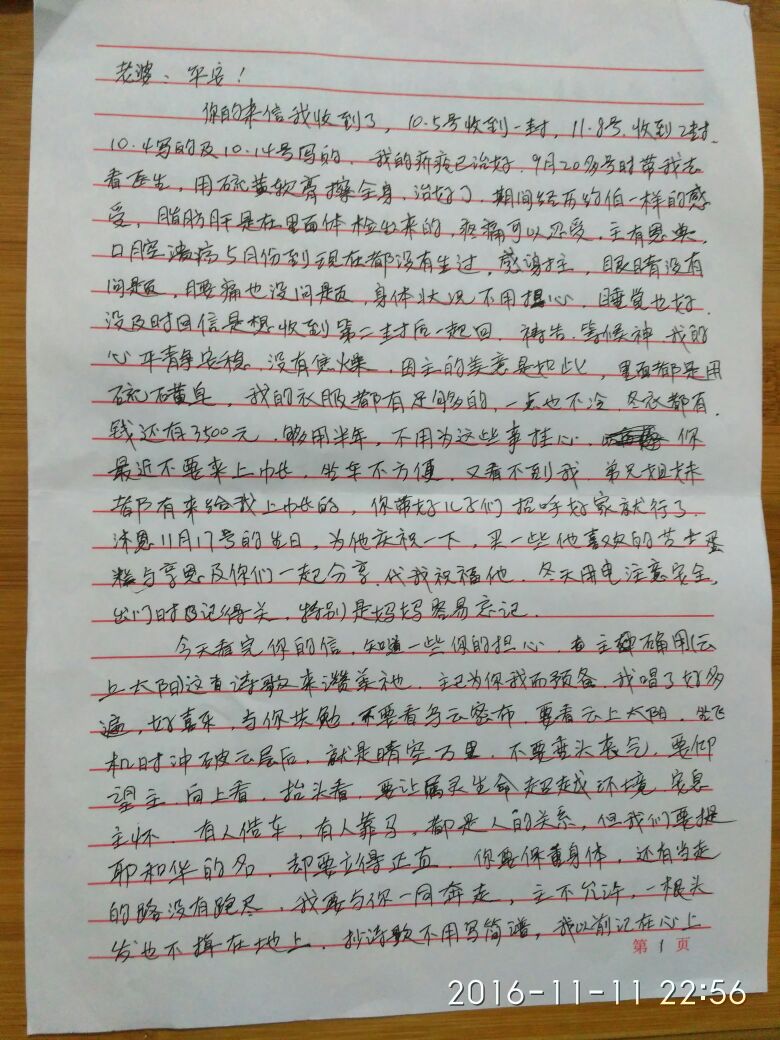 老婆、平安！
你的来信我收到了，10.5号收到一封，11.8号收到2封，
10.4写的及10.14号写的，我的疥疮已治好，9月20多号时带我去
看医生，用硫黄软膏擦全身，治好了，期间经历约伯一样的感
受，脂肪肝是在里面体检出来的，疼痛可以忍受，主有恩典，
口腔溃疡5月份到现在都没有生过，感谢主，眼睛没有
问题，腰痛也没问题，身体状况不用担心，睡觉也好，
没及时回信是想收到第二封后一起回，祷告，等候神，我的
心平静安稳，没有焦燥，因主的美意是如此，里面都是用
硫黄皂，我的衣服都有足够的，一点也不冷，冬衣都有，
钱还有3500元，够用半年，不用为这些事挂心，你
最近不要来上帐，坐车不方便，又看不到我，弟兄姐妹
都有来给我上帐的，你带好儿子们招呼好家就行了，
沐恩11月17号的生日，为他庆祝一下，买一些他喜欢的芝士蛋
糕与享恩及你们一起分享，代我祝福他，冬天用电注意安全，
出门时记得关，特别是妈妈容易忘记．
今天看完你的信，知道一些你的担心，主确用（云
上太阳）这首诗歌来赞美祂，主已为你我而预备，我唱了好多
遍，好喜乐，与你共勉，不要看乌云密布，要看云上太阳，坐飞
机时冲破云层后，就是晴空万里，不要垂头丧气，要仰
望主，向上看，抬头看，要让属灵生命超越环境，安息
主怀，有人借车，有人靠马，都是人的关系，但我们要提
耶和华的名，却要立得正直，你要保重身体，还有当走
的路没有跑尽，我要与你一同奔走，主不允许，一根头
发也不掉在地上，抄诗歌不用写简谱，我以前记在心上
第 1 页
2016-11-11 22:56